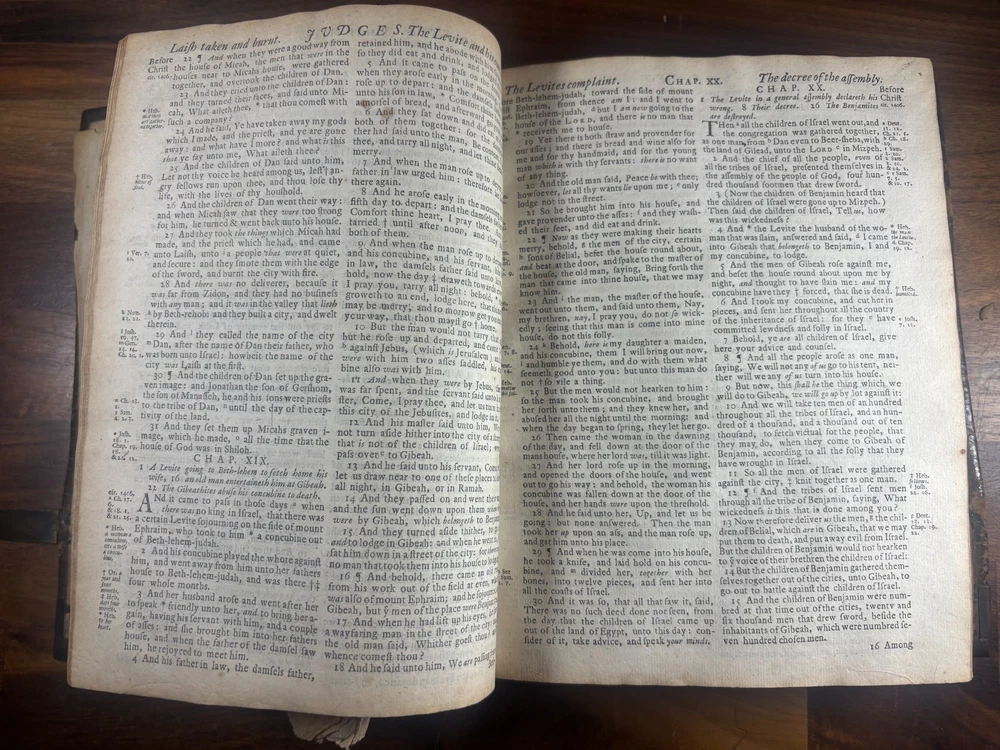 Laiſh taken and burnt.
JUDGES.
The Levite and his
Before
Chriſt
cir. 1406.
22 ¶ And when they were a good way from
the houſe of Micah, the men that were in the
houſes near to Micahs houſe, were gathered
together, and overtook the children of Dan.
23 And they cried unto the children of Dan:
and they turned their faces, and ſaid unto Mi-
cah, What aileth thee, * that thou comeſt with
ſuch a company?
24 And he ſaid, Ye have taken away my gods
which I made, and the prieſt, and ye are gone
away: and what have I more? and what is this
that ye ſay unto me, What aileth thee?
25 And the children of Dan ſaid unto him,
Let not thy voice be heard among us, leſt † an-
gry fellows run upon thee, and thou loſe thy
life, with the lives of thy houſhold.
26 And the children of Dan went their way:
and when Micah ſaw that they were too ſtrong
for him, he turned & went back unto his houſe.
27 And they took the things which Micah had
made, and the prieſt which he had, and came
unto Laiſh, unto a people that were at quiet,
and ſecure: and they ſmote them with the edge
of the ſword, and burnt the city with fire.
28 And there was no deliverer, becauſe it
was far from Zidon, and they had no buſineſs
with any man; and it was in the valley that lieth
by Beth-rehob: and they built a city, and dwelt
therein.
29 And they called the name of the city
Dan, after the name of Dan their father, who
was born unto Iſrael: howbeit the name of the
city was Laiſh at the firſt.
30 ¶ And the children of Dan ſet up the gra-
ven image: and Jonathan the ſon of Gerſhom,
the ſon of Manaſſeh, he and his ſons were prieſts
to the tribe of Dan, until the day of the cap-
tivity of the land.
31 And they ſet them up Micahs graven i-
mage, which he made, all the time that the
houſe of God was in Shiloh.
CHAP. XIX.
1 A Levite going to Beth-lehem to fetch home his
wife, 16 an old man entertaineth him at Gibeah.
22 The Gibeathites abuſe his concubine to death.
cir. 1406.
And it came to paſs in thoſe days when
there was no king in Iſrael, that there was
a certain Levite ſojourning on the ſide of mount
Ephraim, who took to him * a concubine out
of Beth-lehem-judah.
2 And his concubine played the whore againſt
him, and went away from him unto her fathers
houſe to Beth-lehem-judah, and was there ‡‡
four whole months.
3 And her husband aroſe and went after her
to ſpeak * friendly unto her, and to bring her a-
gain, having his ſervant with him, and a couple
of aſſes: and ſhe brought him into her fathers
houſe, and when the father of the damſel ſaw
him, he rejoyced to meet him.
4 And his father in law, the damſels father,
retained him, and he abode with him
ſo they did eat and drink, and lodged
5 And it came to paſs on the
when they aroſe early in the mor
roſe up to depart: and the damſels
unto his ſon in law, * Comfort
a morſel of bread, and afterward
6 And they ſat down and did eat
both of them together: for the
ther had ſaid unto the man, Be con
thee, and tarry all night, and let thine
merry.
7 And when the man roſe up to
father in law urged him: therefore he
there again.
8 And he aroſe early in the morning
fifth day to depart: and the damſels
Comfort thine heart, I pray thee.
tarried † until after noon, and they
both of them.
9 And when the man roſe up to
and his concubine, and his ſervant, his
in law, the damſels father ſaid unto
hold, now the day † draweth towards
I pray you, tarry all night: behold,
groweth to an end, lodge here, that
may be merry; and to morrow get you
your way, that thou mayſt go † home.
10 But the man would not tarry that
but he roſe up and departed, and came
againſt Jebus, (which is Jeruſalem) and
were with him two aſſes ſaddled, his
bine alſo was with him.
11 And when they were by Jebus, the
was far ſpent, and the ſervant ſaid unto
ſter, Come, I pray thee, and let us turn
this city of the Jebuſites, and lodge in
12 And his maſter ſaid unto him, We
not turn aſide hither into the city of a
that is not of the children of Iſrael; we
paſs over to Gibeah.
13 And he ſaid unto his ſervant, Come
let us draw near to one of theſe places
all night, in Gibeah, or in Ramah.
14 And they paſſed on and went their
and the ſun went down upon them when
were by Gibeah, which belongeth to Benja
15 And they turned aſide thither, to
and to lodge in Gibeah: and when he went in
ſat him down in a ſtreet of the city: for
no man that took them into his houſe to lodg
16 ¶ And behold, there came an old
from his work out of the field at even,
was alſo of mount Ephraim; and he ſojourn
Gibeah, but ẏ men of the place were Benja
17 And when he had lift up his eyes, he
a wayfaring man in the ſtreet of the city:
the old man ſaid, Whither goeſt thou?
whence comeſt thou?
18 And he ſaid unto him, We are paſſing
The Levites complaint.
CHAP. XX.
The decree of the aſſembly.
Beth-lehem-judah, toward the ſide of mount
Ephraim, from thence am I: and I went to
Beth-lehem-judah, but I am now going to the
houſe of the LORD, and there is no man that
* receiveth me to houſe.
19 Yet there is both ſtraw and provender for
our aſſes; and there is bread and wine alſo for
me and for thy handmaid, and for the young
man which is with thy ſervants: there is no want
of any thing.
20 And the old man ſaid, Peace be with thee;
howſoever, let all thy wants lie upon me; only
lodge not in the ſtreet.
21 So he brought him into his houſe, and
gave provender unto the aſſes: and they waſh-
ed their feet, and did eat and drink.
22 ¶ Now as they were making their hearts
merry, behold, the men of the city, certain
ſons of Belial, beſet the houſe round about,
and beat at the door, and ſpake to the maſter of
the houſe, the old man, ſaying, Bring forth the
man that came into thine houſe, that we may
know him.
23 And the man, the maſter of the houſe,
went out unto them, and ſaid unto them, Nay,
my brethren, nay, I pray you, do not ſo wick-
edly; ſeeing that this man is come into mine
houſe, do not this folly.
24 Behold, here is my daughter a maiden,
and his concubine, them I will bring out now,
and humble ye them, and do with them what
ſeemeth good unto you: but unto this man do
not † ſo vile a thing.
25 But the men would not hearken to him:
ſo the man took his concubine, and brought
her forth unto them; and they knew her, and
abuſed her all the night until the morning: and
when the day began to ſpring, they let her go.
26 Then came the woman in the dawning
of the day, and fell down at the door of the
mans houſe, where her lord was, till it was light.
27 And her lord roſe up in the morning,
and opened the doors of the houſe, and went
out to go his way: and behold, the woman his
concubine was fallen down at the door of the
houſe, and her hands were upon the threſhold.
28 And he ſaid unto her, Up, and let us be
going; but none anſwered. Then the man
took her up upon an aſs, and the man roſe up,
and gat him unto his place.
29 ¶ And when he was come into his houſe,
he took a knife, and laid hold on his concu-
bine, and divided her, together with her
bones, into twelve pieces, and ſent her into
all the coaſts of Iſrael.
30 And it was ſo, that all that ſaw it, ſaid,
There was no ſuch deed done nor ſeen, from
the day that the children of Iſrael came up
out of the land of Egypt, unto this day: con-
ſider of it, take advice, and ſpeak your minds.
CHAP. XX.
Before
Chriſt
cir. 1406.
1 The Levite in a general aſſembly declareth his
wrong. 8 Their decree. 16 The Benjamites
are deſtroyed.
Then all the children of Iſrael went out, and
the congregation was gathered together,
as one man, from Dan even to Beer-ſheba, with
the land of Gilead, unto the LORD in Mizpeh.
2 And the chief of all the people, even of
all the tribes of Iſrael, preſented themſelves in
the aſſembly of the people of God, four hun-
dred thouſand footmen that drew ſword.
3 (Now the children of Benjamin heard that
the children of Iſrael were gone up to Mizpeh.)
Then ſaid the children of Iſrael, Tell us, how
was this wickedneſs?
4 And * the Levite the husband of the wo-
man that was ſlain, anſwered and ſaid, I came
into Gibeah that belongeth to Benjamin, I and
my concubine, to lodge.
5 And the men of Gibeah roſe againſt me,
and beſet the houſe round about upon me by
night, and thought to have ſlain me: and my
concubine have they † forced, that ſhe is dead.
6 And I took my concubine, and cut her in
pieces, and ſent her throughout all the country
of the inheritance of Iſrael: for they have
committed lewdneſs and folly in Iſrael.
7 Behold, ye are all children of Iſrael, give
here your advice and counſel.
8 ¶ And all the people aroſe as one man,
ſaying, We will not any of us go to his tent, nei-
ther will we any of us turn into his houſe.
9 But now, this ſhall be the thing which we
will do to Gibeah, we will go up by lot againſt it;
10 And we will take ten men of an hundred
throughout all the tribes of Iſrael, and an hun-
dred of a thouſand, and a thouſand out of ten
thouſand, to fetch victual for the people, that
they may do, when they come to Gibeah of
Benjamin, according to all the folly that they
have wrought in Iſrael.
11 So all the men of Iſrael were gathered
againſt the city, ‡ knit together as one man.
12 ¶ And the tribes of Iſrael ſent men
through all the tribe of Benjamin, ſaying, What
wickedneſs is this that is done among you?
13 Now therefore deliver us the men, ẏ chil-
dren of Belial, which are in Gibeah, that we may
put them to death, and put away evil from Iſrael.
But the children of Benjamin would not hearken
to ẏ voice of their brethren the children of Iſrael:
14 But the children of Benjamin gathered them-
ſelves together out of the cities, unto Gibeah, to
go out to battle againſt the children of Iſrael.
15 And the children of Benjamin were num-
bred at that time out of the cities, twenty and
ſix thouſand men that drew ſword, beſide the
inhabitants of Gibeah, which were numbred ſe-
ven hundred choſen men.
16 Among